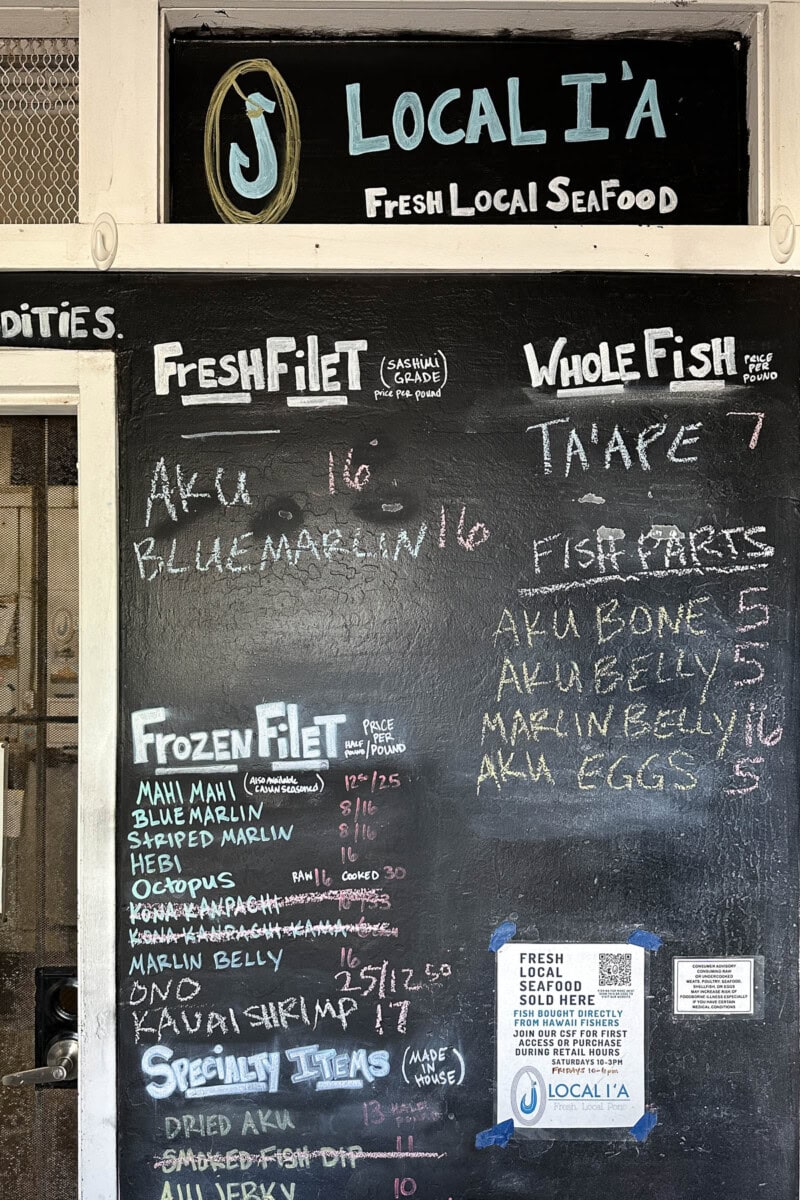 LOCAL I'A
FRESH LOCAL SEAFOOD
DITIES.
FRESH FILET (SASHIMI GRADE)
price per pound
AKU 16
BLUE MARLIN 16
WHOLE FISH PRICE PER POUND
TA'APE 7
FISH PARTS
AKU BONE 5
AKU BELLY 5
MARLIN BELLY 16
AKU EGGS 5
FROZEN FILET HALF POUND/PRICE PER POUND
MAHI MAHI (Also Available CAJUN SEASONED) 12⁵⁰/25
BLUE MARLIN 8/16
STRIPED MARLIN 8/16
HEBI 16
Octopus RAW 16 COOKED 30
KONA KANPACHI
KONA KANPACHI KAMA
MARLIN BELLY 16
ONO 25/12⁵⁰
KAUAI SHRIMP 17
SPECIALTY ITEMS (MADE IN HOUSE)
DRIED AKU 13 HALF
SMOKED FISH DIP 11
AHI JERKY 10
FRESH
LOCAL
SEAFOOD
SOLD HERE
FISH BOUGHT DIRECTLY
FROM HAWAII FISHERS
JOIN OUR CSF FOR FIRST
ACCESS OR PURCHASE
DURING RETAIL HOURS
SATURDAYS 10-3PM
FRIDAYS
LOCAL I'A
Fresh. Local. Pono.
CONSUMER ADVISORY
CONSUMING RAW
OR UNDERCOOKED
MEATS, POULTRY, SEAFOOD,
SHELLFISH, OR EGGS
MAY INCREASE RISK OF
FOODBORNE ILLNESS ESPECIALLY
IF YOU HAVE CERTAIN
MEDICAL CONDITIONS